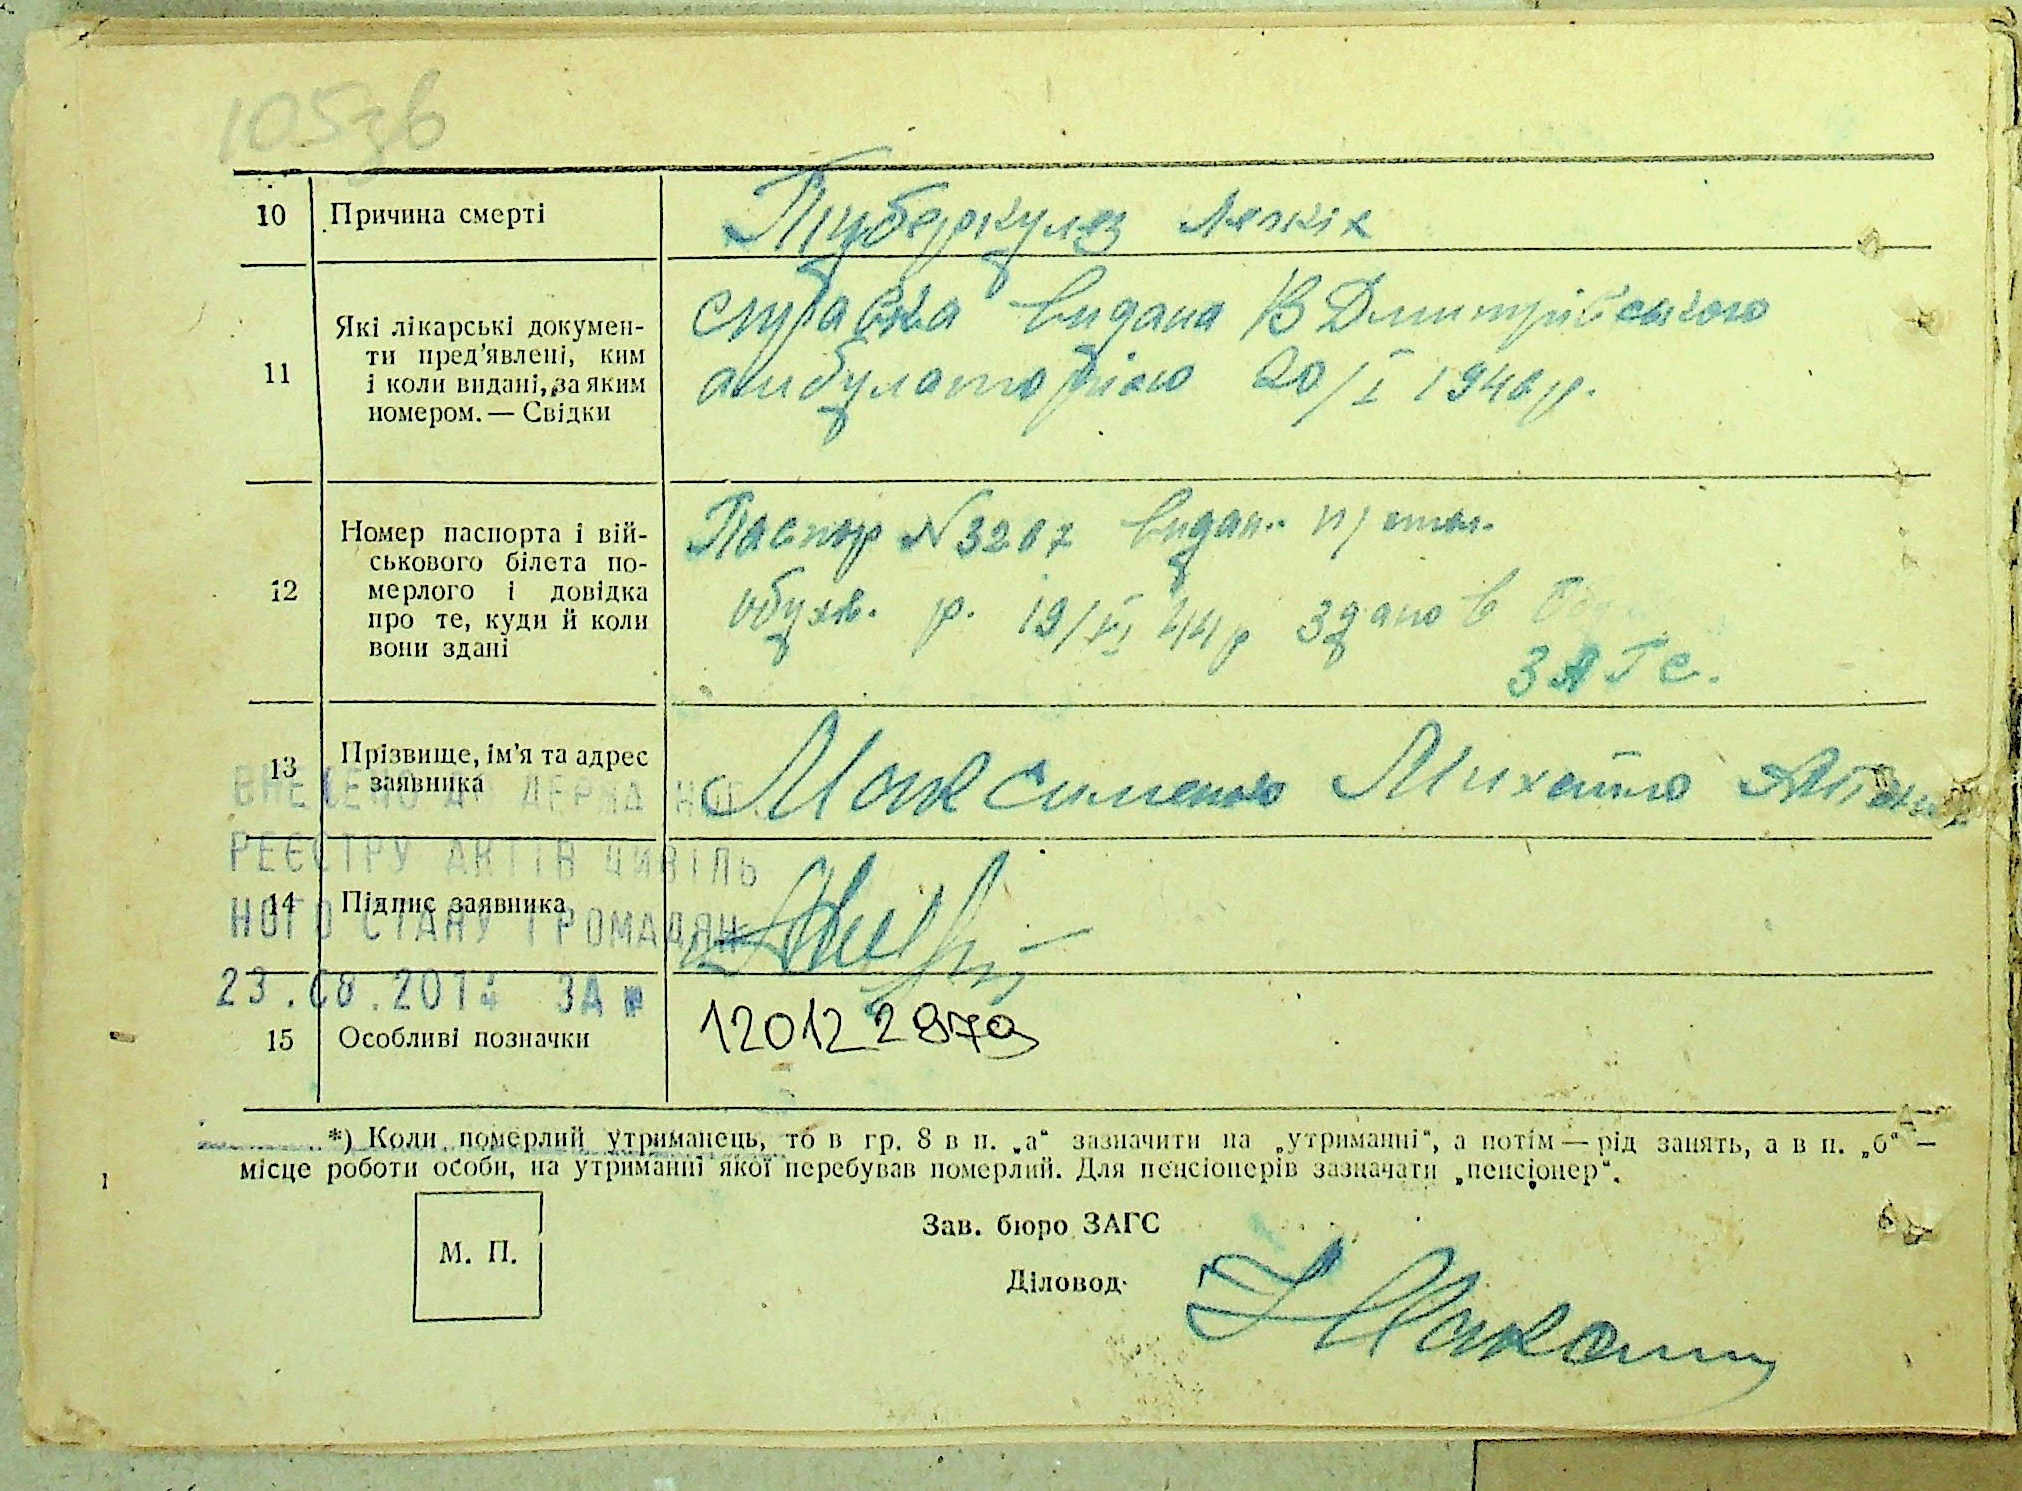 105зв
10 Причина смерті Туберкулез легкіх
11 Які лікарські докумен-
ти пред'явлені, ким
і коли видані, за яким
номером. — Свідки
справка видана В Дмитрівського
амбулаторією 20/I 1946 р.
12 Номер паспорта і вій-
ськового білета по-
мерлого і довідка
про те, куди й коли
вони здані
Паспор N 3207 видан.
обухв. р. 19/VI 44 р здано в
ЗАГС.
13 Прізвище, ім'я та адрес
заявника
Максименко Михайло
14 Підпис заявника
ВНЕСЕНО ДО ДЕРЖАВНОГО
РЕЄСТРУ АКТІВ ЦИВІЛЬ
НОГО СТАНУ ГРОМАДЯН
23.08.2014 ЗА №
15 Особливі позначки 120122879
*) Коли померлий утриманець, то в гр. 8 в п. „а“ зазначити на „утриманні“, а потім — рід занять, а в п. „б“ —
місце роботи особи, на утриманні якої перебував померлий. Для пенсіонерів зазначати „пенсіонер“.
М. П.
Зав. бюро ЗАГС
Діловод